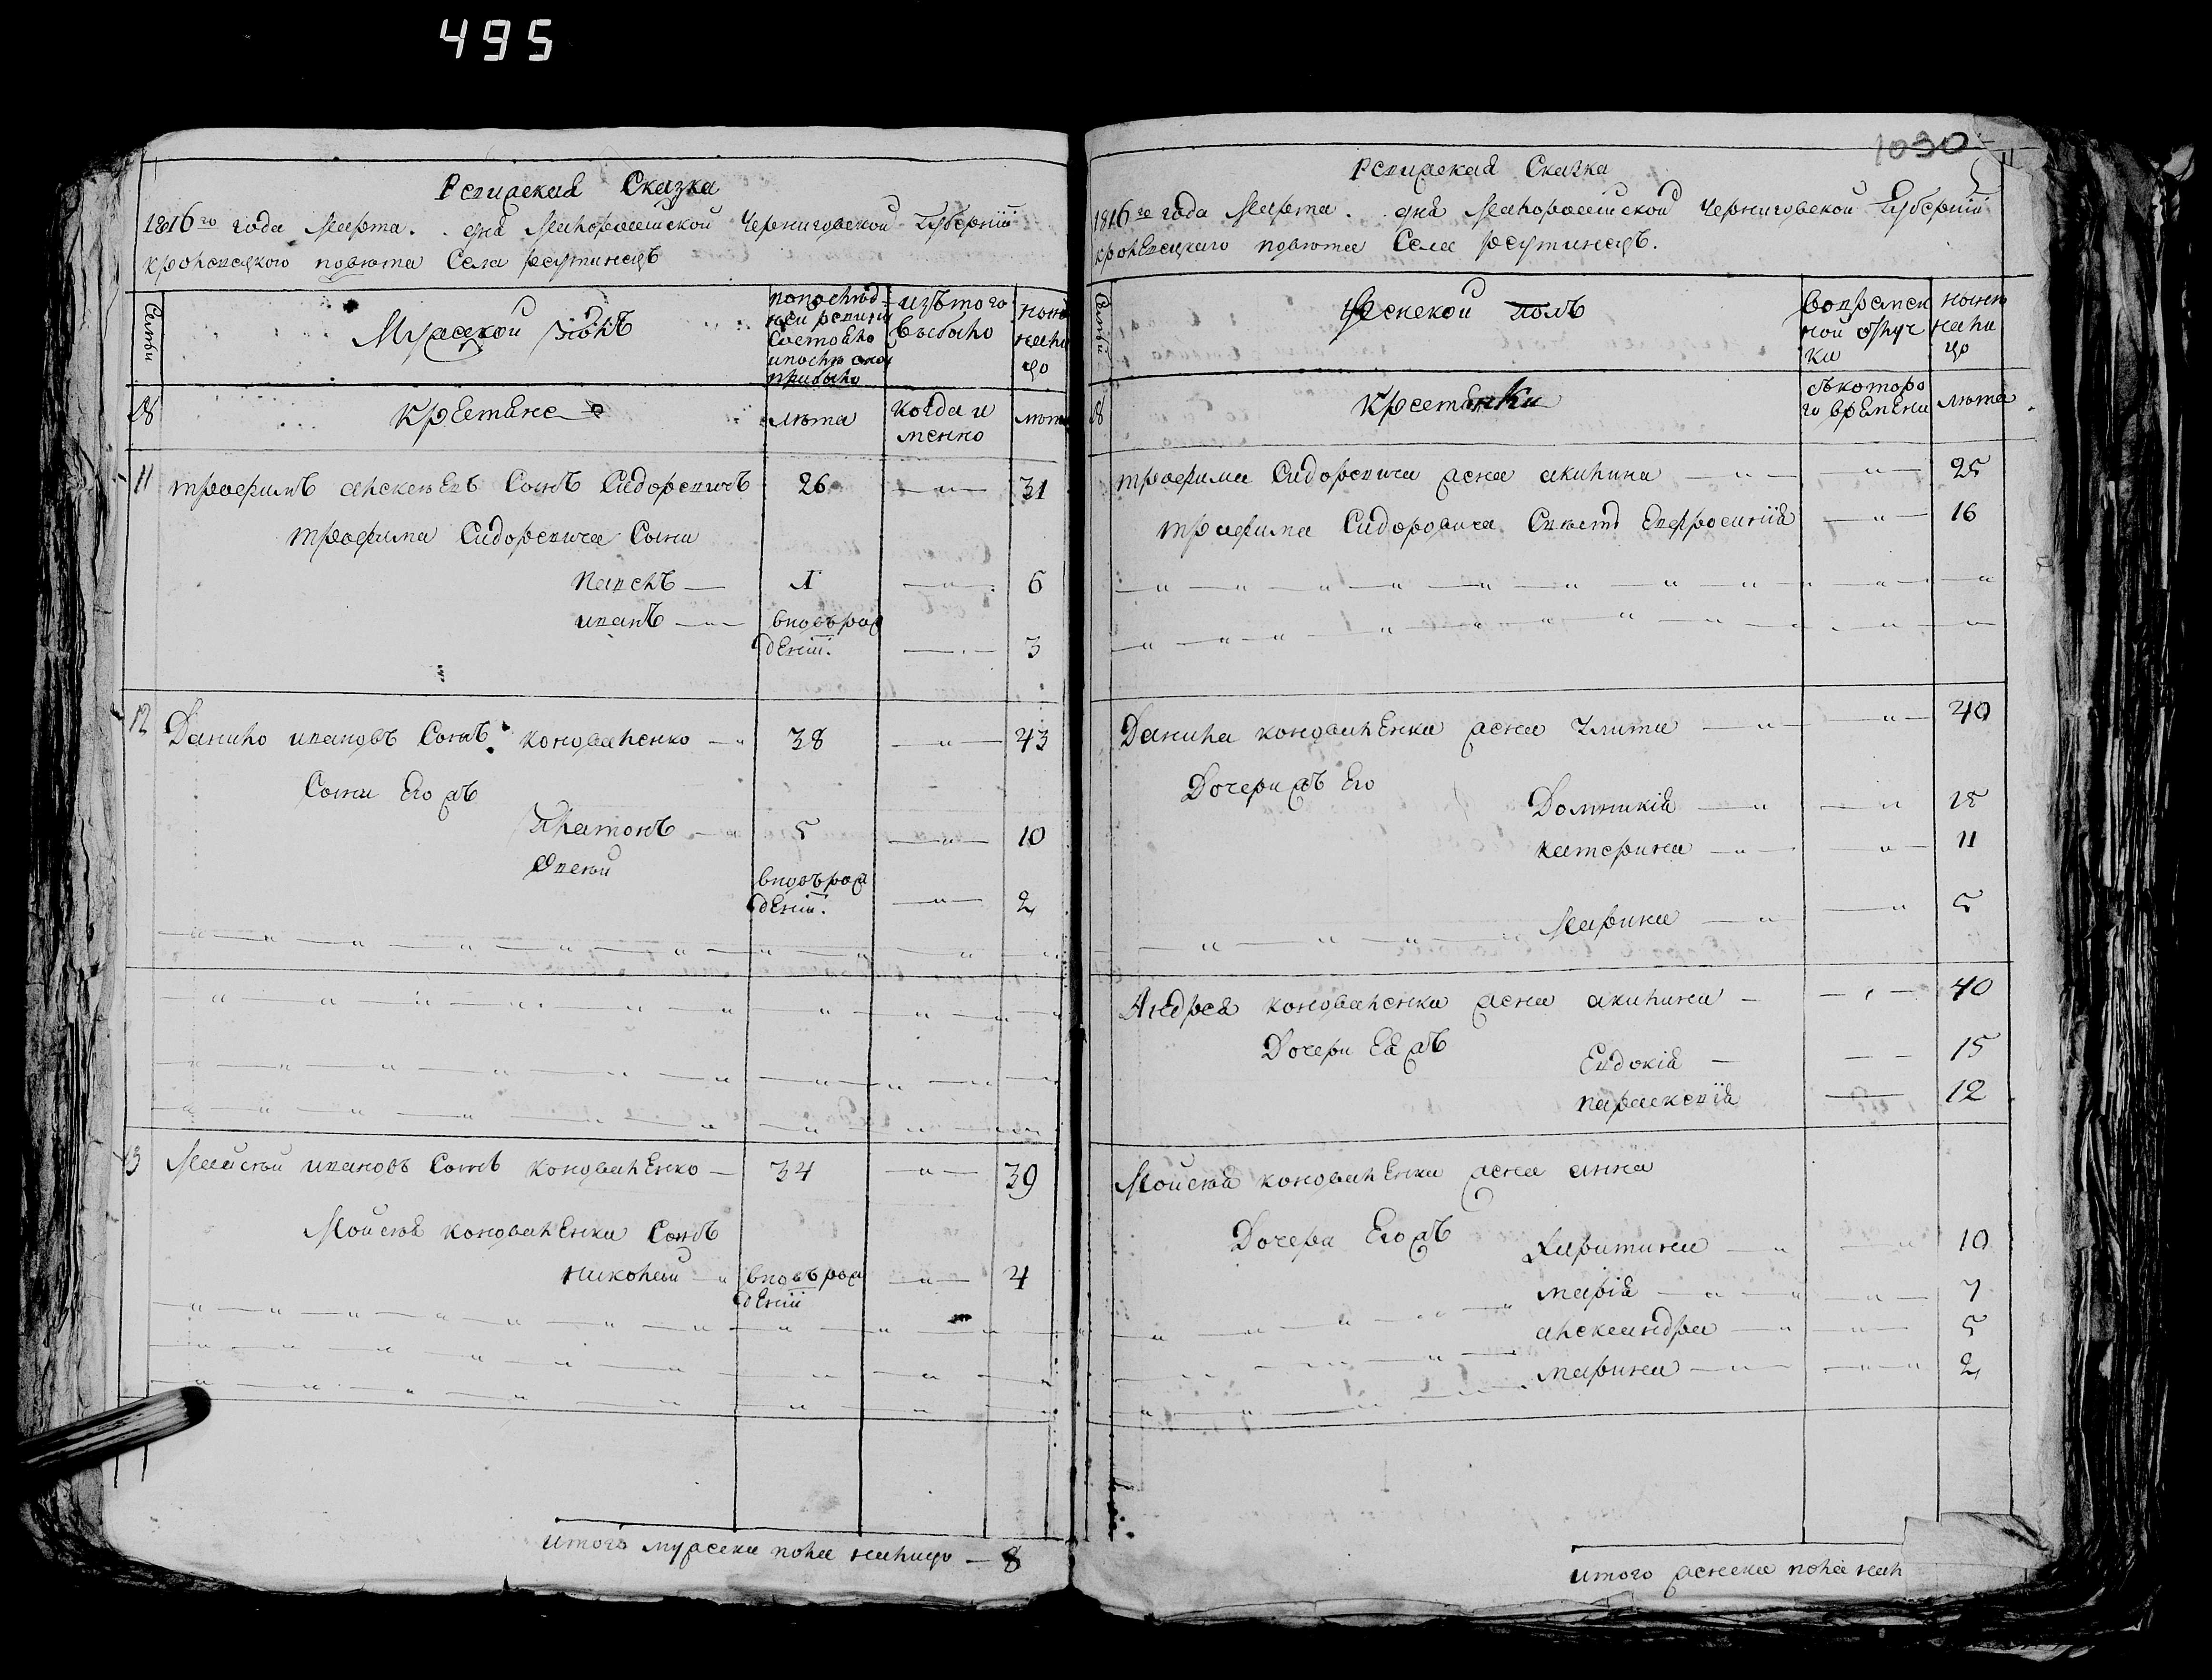 495
Ревижская Сказка
1816го года Марта . . дня Малороссийской Черниговской Губернїи
кролевецкого повѣта Села реутинецъ
Семьи
Мужеской полъ
попослѣд
ней ревизи
Состояло
ипослѣ оной
прибыло
изътого
выбыло
ныне
нали
цо
№
крестяне
лѣта
когда и
менно
лѣта
11 трофимъ алексѣевъ Сынъ Сидоревичъ 26 — " — 31
трофима Сидоревича Сыни
павелъ — 1 — " — 6
иванъ — " — вновърож
денїи. — . — 3
12 Данило ивановъ Сынъ коноваленко — " 38 — " — 43
Сыни Его жъ
Платонъ — " 5 — " — 10
Овсѣй вновърож
денїи. — " — 2
13 Мойсѣй ивановъ Сынъ коноваленко — 34 — " — 39
Мойсѣя коноваленка Сынъ
николай — " вновърож
денїи — " — 4
итого мужеска пола налицо — 8
1030
Ревижская Сказка
1816го года Марта . . дня Малороссийской Черниговской Губернїи
кролевецкаго повѣта Села реутинецъ.
Семьи
Женской полъ
вовремен
ной отлуч
ки
ныне
нали
цо
№
крестянки
съкоторо
го времени
лѣта
трофима Сидоревича жена акилина — " — — " — 25
трофима Сидоровича Евфросинїя — " — 16
Данила коноваленка жена Улита — " — — " — 40
Дочери жъ Его
Домникїя — " — " 15
катерина — " — — " — 11
Марина — " — " 5
Андрея коноваленка жена акилина — — " — 40
Дочери Ея жъ
Евдокїя — — — 15
параскевїя — 12
Мойсѣя коноваленка жена анна
Дочери Его жъ
Харитина — " — " 10
марїя — " — " — " — 7
александра — " — " — 5
марина — " — — " — " 2
итого женска пола нал